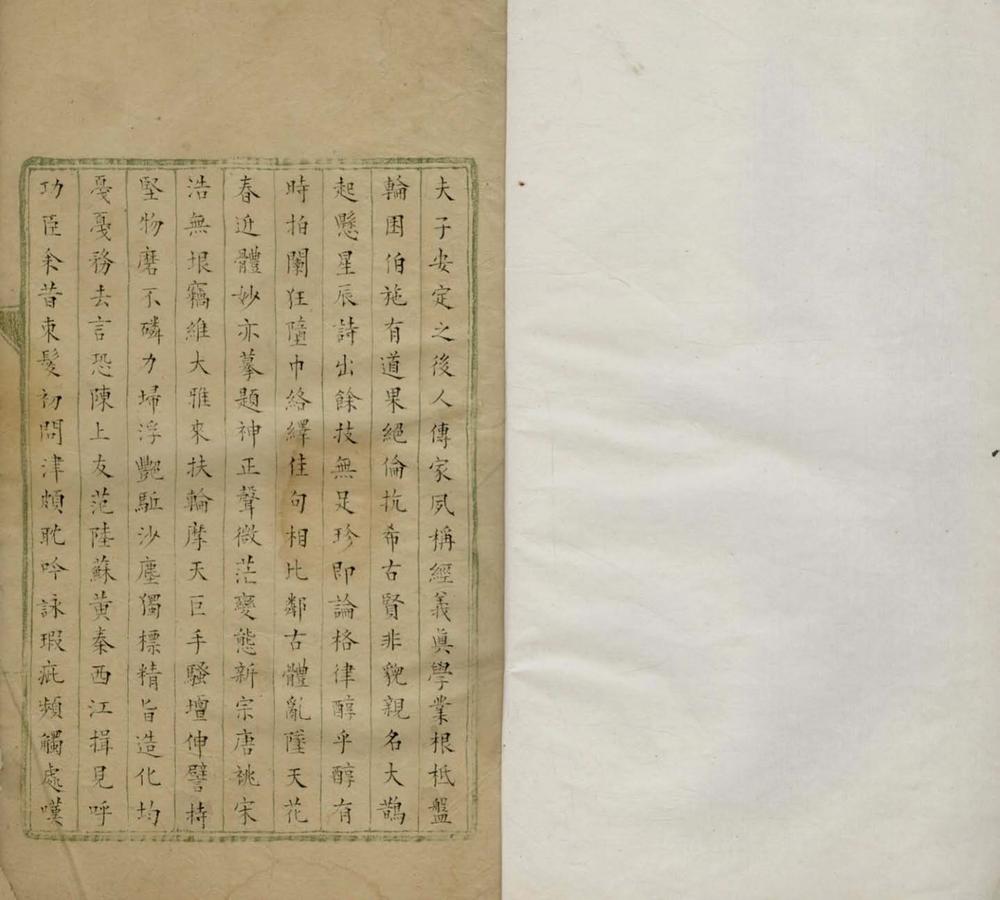 夫子安定之後人傳家夙稱經義真學業根柢盤
輪囷伯施有道果絕倫抗希古賢非貌親名大鵲
起懸星辰詩出餘技無足珍即論格律醇乎醇有
時拍闌狂墮巾絡繹佳句相比鄰古體亂墜天花
春近體妙亦摹題神正聲微茫變態新宗唐祧宋
浩無垠竊維大雅來扶輪摩天巨手騷壇伸譬持
堅物磨不磷力埽浮艷驅沙塵獨標精旨造化均
戛戛務去言恐陳上友范陸蘇黃秦西江揖見呼
功臣余昔束髮初問津頗耽吟詠瑕疵頻觸處嘆